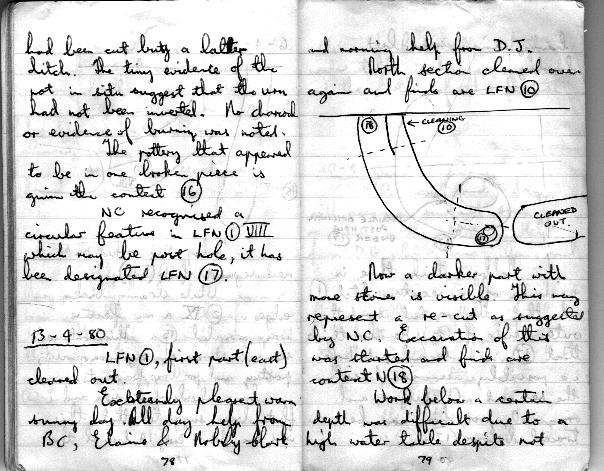 had been cut by a later
ditch. The tiny evidence of the
pot in situ suggest that the urn
had not been inverted. No charcoal
or evidence of burning was noted.
The pottery that appeared
to be in one broken piece is
given the context 16
NC recognised a
circular feature in LFN 1 VIII
which may be post hole, it has
been designated LFN 17.
13-4-80
LFN 1, first part (east)
cleared out.
pleasant warm
sunny day. All day help from
BC, Elaine & Bobby Clark
78
and morning help from D.J.
North section cleaned over
again and finds are LFN 10
18
← CLEANING
10
17
CLEANED
OUT.
Now a darker part with
more stones is visible. This may
represent a re-cut as suggested
by N.C. Excavation of this
was started and finds are
context N 18
Work below a certain
depth was difficult due to a
high water table despite not
79